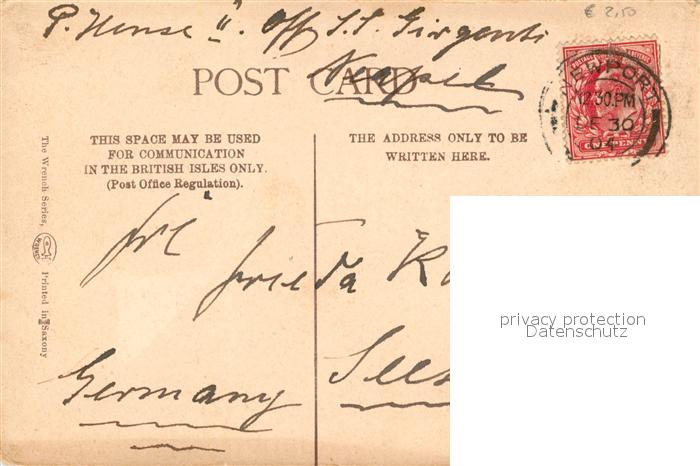 € 2,50
P. Hense II. Off S.S. Girgenti
Neapel
POST CARD
NEWPORT
12.30.PM
DE 30
04
THIS SPACE MAY BE USED
FOR COMMUNICATION
IN THE BRITISH ISLES ONLY.
(Post Office Regulation).
THE ADDRESS ONLY TO BE
WRITTEN HERE.
The Wrench Series,
Printed in Saxony
Frl
Frieda
Germany
privacy protection
Datenschutz